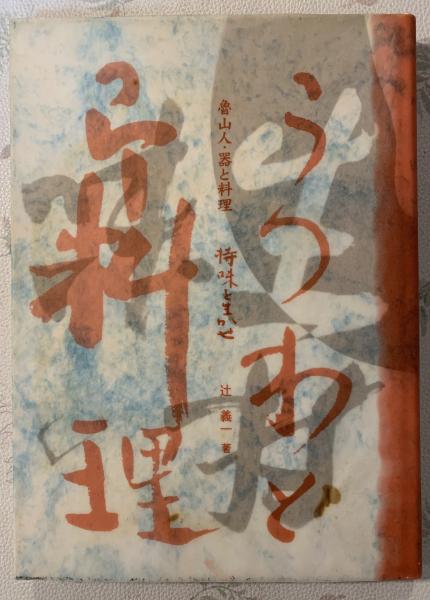 うつわと
魯山人・器と料理
持味を生かせ
辻 義一 著
料理